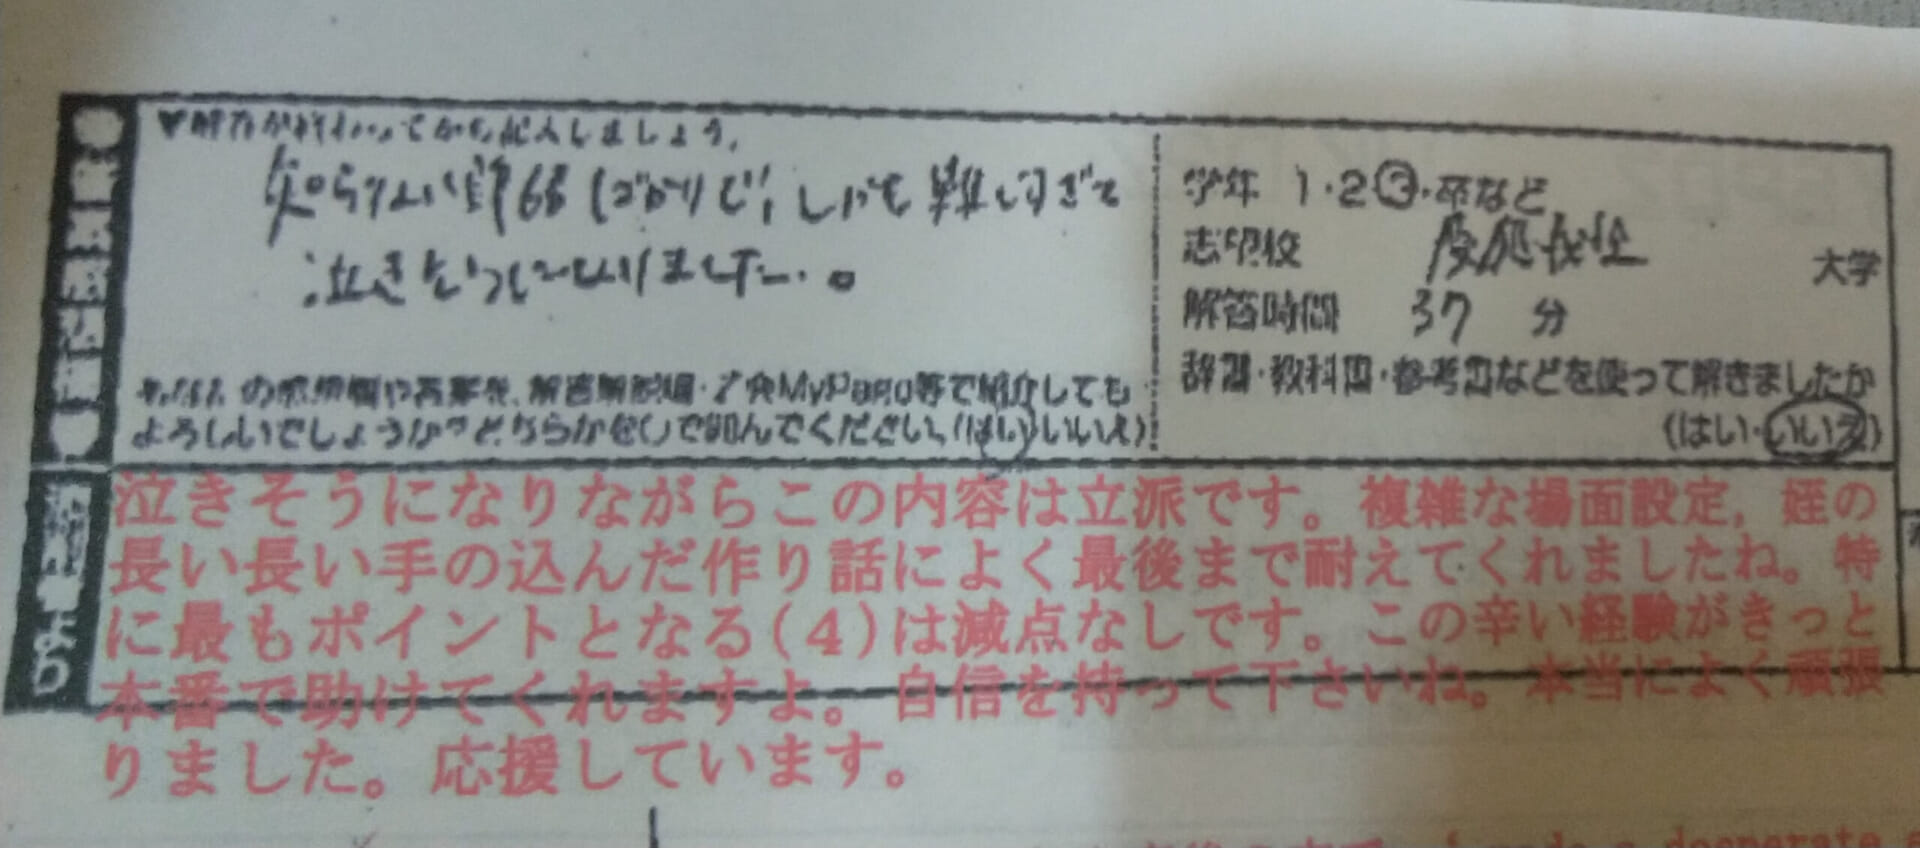 ▼解答が終わってから記入しましょう。
知らない単語ばかりで、しかも難しすぎて
泣きそうになりました。
の感想欄や答案を、解答解説編・Z会MyPage等で紹介しても
よろしいでしょうか？どちらかを○で囲んでください。(はい・いいえ)
学年 1・2・3・卒など
志望校 慶應 大学
解答時間 37 分
辞書・教科書・参考書などを使って解きましたか
(はい・いいえ)
より
泣きそうになりながらこの内容は立派です。複雑な場面設定，姪の
長い長い手の込んだ作り話によく最後まで耐えてくれましたね。特
に最もポイントとなる(4)は減点なしです。この辛い経験がきっと
本番で助けてくれますよ。自信を持って下さいね。本当によく頑張
りました。応援しています。
made a desperate